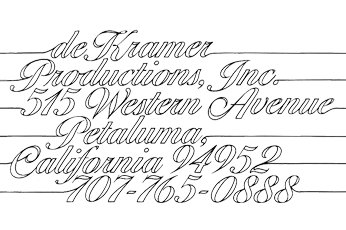 deKramer
Productions, Inc.
515 Western Avenue
Petaluma,
California 94952
707-765-0888